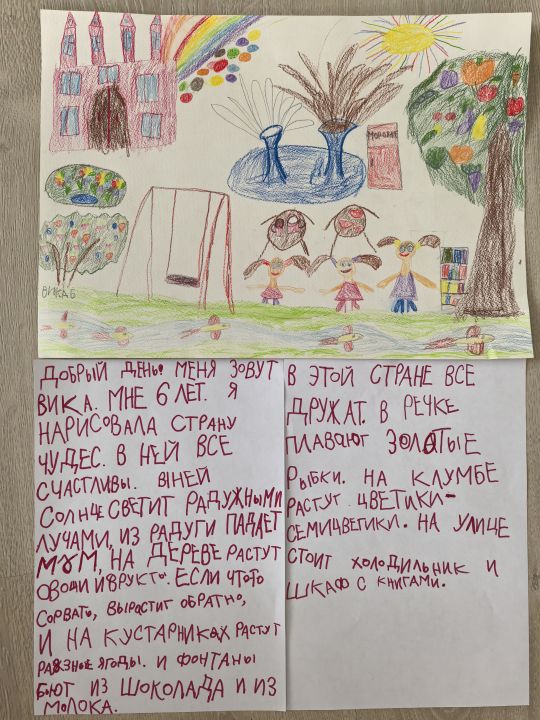 МОРОЖЕНОЕ
ВИКА 6
ДОБРЫЙ ДЕНЬ! МЕНЯ ЗОВУТ
ВИКА. МНЕ 6 ЛЕТ. Я
НАРИСОВАЛА СТРАНУ
ЧУДЕС. В НЕЙ ВСЕ
СЧАСТЛИВЫ. ВНЕЙ
СОЛНЦЕ СВЕТИТ РАДУЖНЫМИ
ЛУЧАМИ, ИЗ РАДУГИ ПАДАЕТ
МУМ, НА ДЕРЕВЕ РАСТУТ
ОВОЩИ И ФРУКТЫ. ЕСЛИ ЧТОТО
СОРВАТЬ, ВЫРАСТИТ ОБРАТНО,
И НА КУСТАРНИКАХ РАСТУТ
РАЗНЫЕ ЯГОДЫ. И ФОНТАНЫ
БЬЮТ ИЗ ШОКОЛАДА И ИЗ
МОЛОКА.
В ЭТОЙ СТРАНЕ ВСЕ
ДРУЖАТ. В РЕЧКЕ
ПЛАВАЮТ ЗОЛОТЫЕ
РЫБКИ. НА КЛУМБЕ
РАСТУТ ЦВЕТИКИ-
СЕМИЦВЕТИКИ. НА УЛИЦЕ
СТОИТ ХОЛОДИЛЬНИК И
ШКАФ С КНИГАМИ.